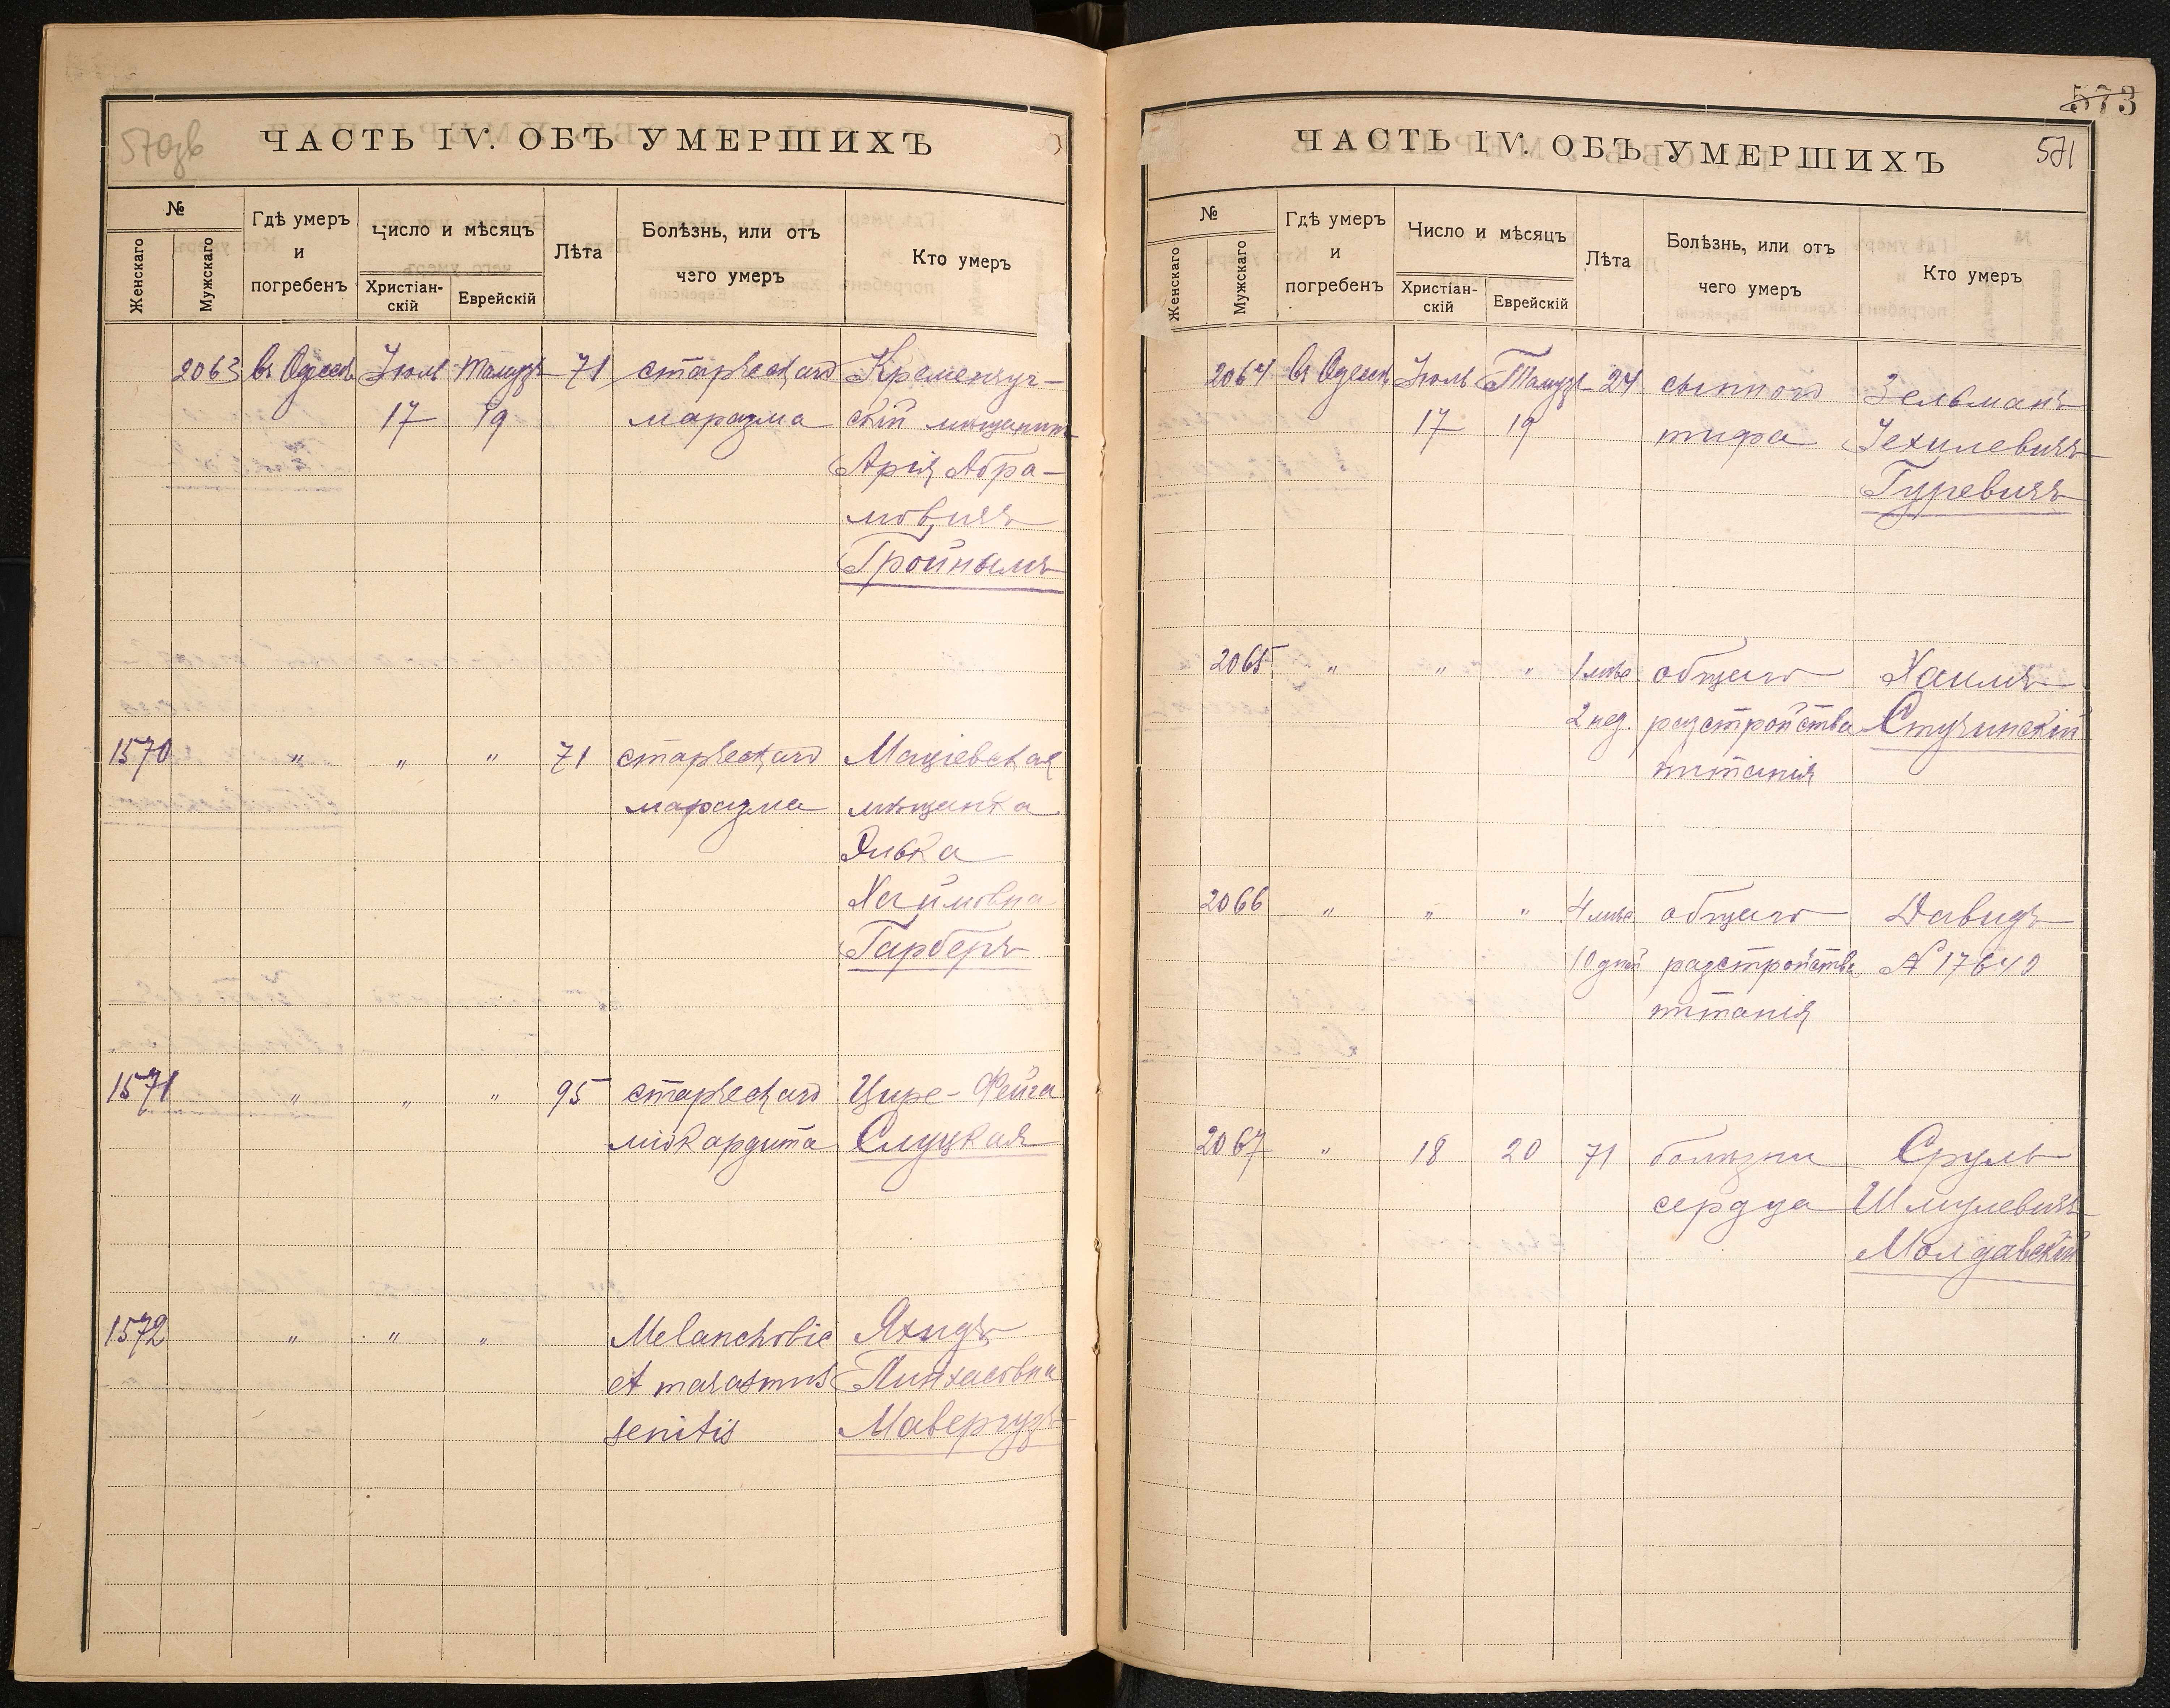 570зв
ЧАСТЬ IV. ОБЪ УМЕРШИХЪ
№
Женскаго
Мужскаго
Гдѣ умеръ
и
погребенъ
Число и мѣсяцъ
Христіан-
скій
Еврейскій
Лѣта
Болѣзнь, или отъ
чего умеръ
Кто умеръ
2063 въ Одессѣ Іюль Тамузъ 71 старческаго Кременчуг-
17 19 маразма скій мѣщанинъ
Арія Абра-
мовичъ
Тройнымъ
1570 " " " 71 старческаго Маціевская
маразма мѣщанка
Ривка
Хаймовна
Гарберъ
1571 " " " 95 старческаго Цире-Фейга
міокардита Слуцкая
1572 " " " Melancholie
et marasmus Пинхасовна
senilis Мавергузъ
573
571
ЧАСТЬ IV. ОБЪ УМЕРШИХЪ
№
Женскаго
Мужскаго
Гдѣ умеръ
и
погребенъ
Число и мѣсяцъ
Христіан-
скій
Еврейскій
Лѣта
Болѣзнь, или отъ
чего умеръ
Кто умеръ
2064 въ Одессѣ Іюль Тамузъ 24 сыпного Зельманъ
17 19 тифа Іехилевичъ
Гуревичъ
2065 " " " 1 мѣс. общаго Хаимъ
2 нед. разстройства Стучинскій
питанія
2066 " " " 4 мѣс. общаго Давидъ
10 дней разстройства № 17640
питанія
2067 " 18 20 71 болѣзни Сруль
сердца Шмулевичъ
Молдавскій